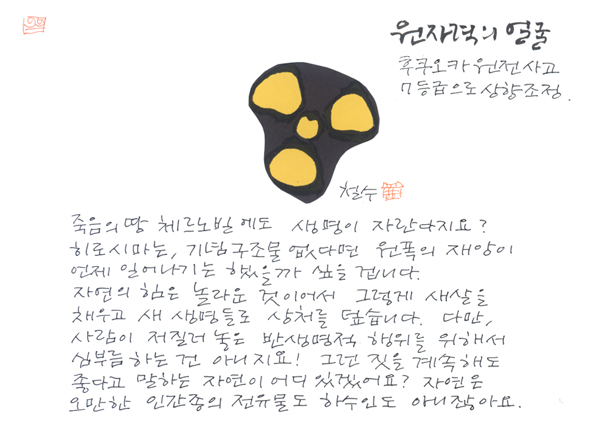 원자력의 얼굴
후쿠오카 원전사고
7등급으로 상향조정.
철수
죽음의 땅 체르노빌에도 생명이 자란다지요?
히로시마는, 기념구조물 없다면 원폭의 재앙이
언제 일어나기는 했을까 싶을 겝니다.
자연의 힘은 놀라운 것이어서 그렇게 새살을
채우고 새 생명들로 상처를 덮습니다. 다만,
사람이 저질러 놓은 반생명적 행위를 위해서
심부름하는 건 아니지요! 그런 짓을 계속해도
좋다고 말하는 자연이 어디 있겠어요? 자연은
오만한 인간종의 전유물도 하수인도 아니잖아요.